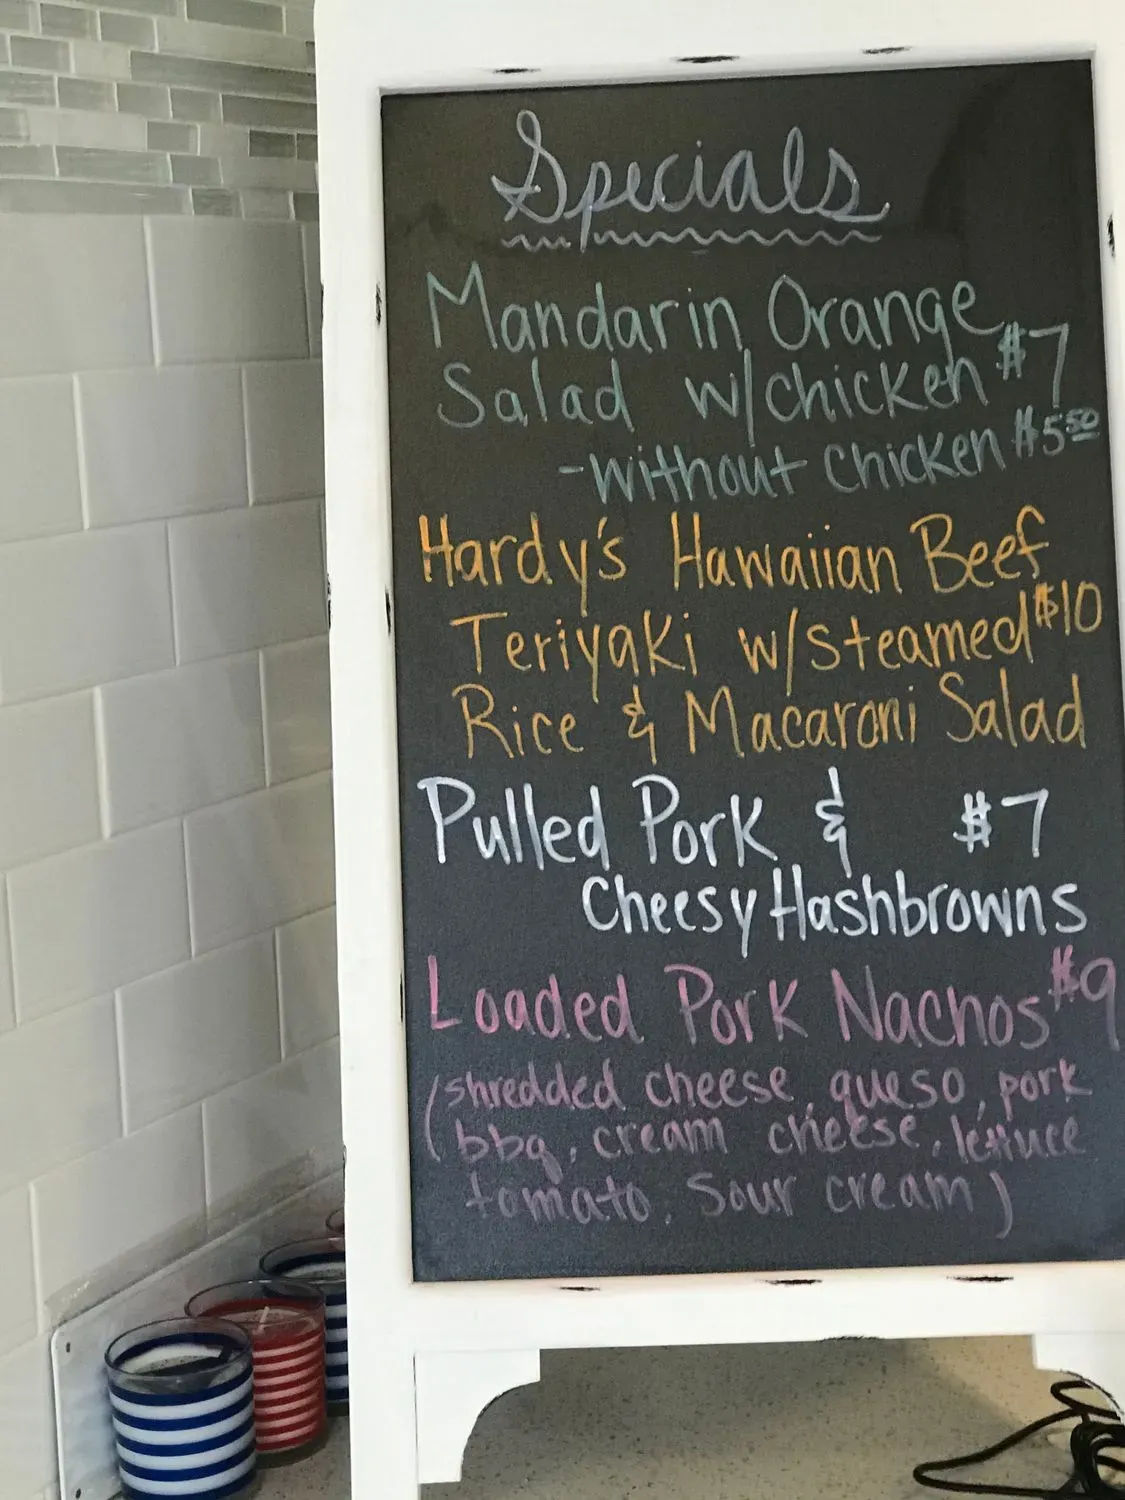 Specials
Mandarin Orange
Salad w/chicken $7
-without chicken $5.50
Hardy's Hawaiian Beef
Teriyaki w/steamed $10
Rice & Macaroni Salad
Pulled Pork & $7
Cheesy Hashbrowns
Loaded Pork Nachos $9
(shredded cheese, queso, pork
bbq, cream cheese, lettuce
tomato, sour cream)